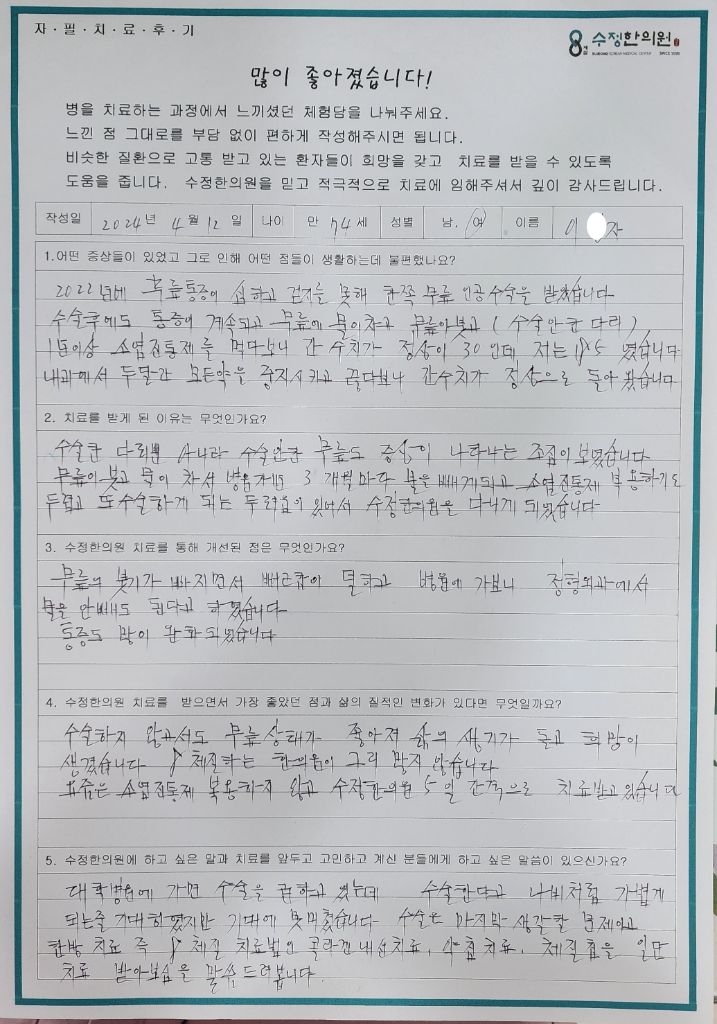 자·필·치·료·후·기
8체질 수정한의원
SINCE 1996
많이 좋아졌습니다!
병을 치료하는 과정에서 느끼셨던 체험담을 나눠주세요.
느낀 점 그대로를 부담 없이 편하게 작성해주시면 됩니다.
비슷한 질환으로 고통 받고 있는 환자들이 희망을 갖고 치료를 받을 수 있도록
도움을 줍니다. 수정한의원을 믿고 적극적으로 치료에 임해주셔서 깊이 감사드립니다.
작성일 2024년 4월 12일 나이 만 74세 성별 남, 여 이름 이 자
1.어떤 증상들이 있었고 그로 인해 어떤 점들이 생활하는데 불편했나요?
2022년에 무릎통증이 심하고 걷지를 못해 한쪽 무릎 인공수술을 받았습니다
수술후에도 통증이 계속되고 무릎에 물이차고 무릎이붓고 (수술안한 다리)
1년이상 소염진통제를 먹다보니 간 수치가 정상이 30인데, 저는 였습니다
내과에서 두달간 모든약을 중지시키고 끊다보니 간수치가 정상으로 돌아 왔습니다
2. 치료를 받게 된 이유는 무엇인가요?
수술한 다리뿐 아니라 수술안한 무릎도 증상이 나타나는 조짐이 보였습니다
무릎이붓고 물이 차서 병원가면 3개월마다 물을빼게되고 소염진통제 복용하기도
두렵고 또수술하게 되는 두려움이 있어서 수정한의원을 다니게 되었습니다
3. 수정한의원 치료를 통해 개선된 점은 무엇인가요?
무릎의 붓기가 빠지면서 뻐근함이 덜하고 병원에 가보니 정형외과에서
물을 안빼도 된다고 하였습니다
통증도 많이 완화되었습니다
4. 수정한의원 치료를 받으면서 가장 좋았던 점과 삶의 질적인 변화가 있다면 무엇일까요?
수술하지 않고서도 무릎상태가 좋아져 삶의 생기가 돋고 희망이
생겼습니다 8체질하는 한의원이 그리 많지 않습니다
요즘은 소염진통제 복용하지 않고 수정한의원 5일 간격으로 치료받고 있습니다
5. 수정한의원에 하고 싶은 말과 치료를 앞두고 고민하고 계신 분들에게 하고 싶은 말씀이 있으신가요?
대학병원에 가면 수술을 권하고 있는데 수술한다고 나비처럼 가볍게
되는줄 기대하였지만 기대에 못미쳤습니다 수술은 마지막 생각할 문제이고
한방 치료 즉 8체질 치료법인 콜라겐내선치료, 약침치료, 체질침을 일단
치료 받아보심을 말씀드려봅니다.